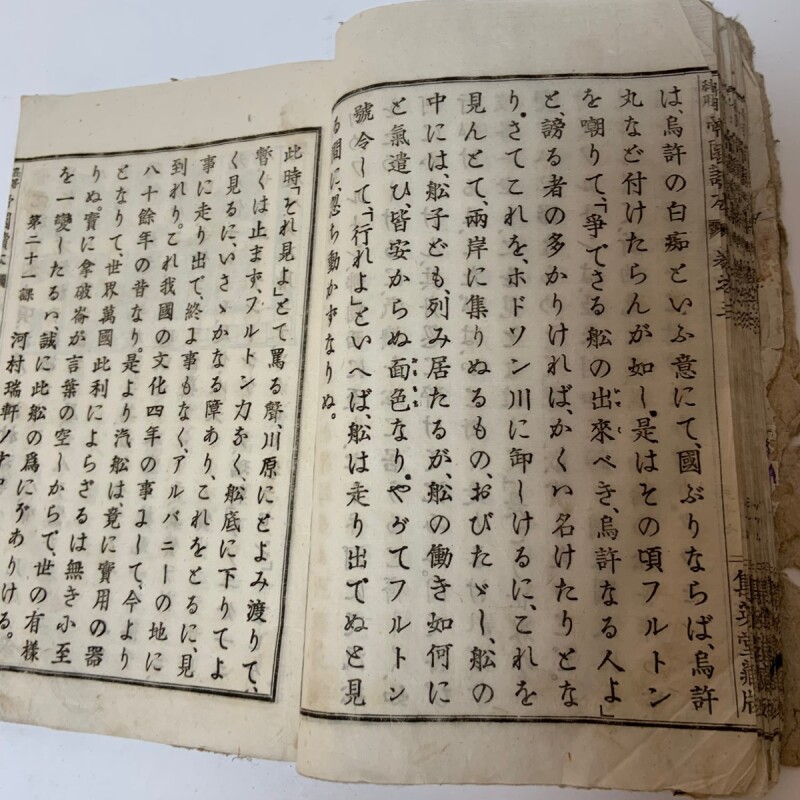 帝國讀本 卷之三
は、烏許の白痴といふ意にて、國ぶりならば、烏許
丸など付けたらんが如し。是はその頃フルトン
を嘲りて、「爭でさる舩の出來べき、烏許なる人よ」
と、謗る者の多かりければ、かくハ名けたりとな
り。さてこれを、ホドソン川に卸しけるに、これを
見んとて、兩岸に集りぬるもの、おびたゞし、舩の
中には、舩子ども、列み居たるが、舩の働き如何に
と氣遣ひ、皆安からぬ面色なり。やがてフルトン
號令して、「行れよ」といへば、舩は走り出でぬと見
る間に、忽ち動かずなりぬ。
集英堂藏版
此時「それ見よ」とて罵る聲、川原にとよみ渡りて、
暫くは止まず、フルトン力なく、舩底に下りてよ
く見るに、いさゝかなる障あり、これをとるに、見
事に走り出で、終ま事もなく、アルバニーの地に
到れり。これ我國の文化四年の事まして、今より
八十餘年の昔なり。是より汽舩は竟に實用の器
となりて、世界萬國此利によらざるは無き小至
りぬ。實に拿破崙が言葉の空しからで、世の有樣
を一變したるハ、誠に此舩の爲にぞありける。
第二十一課 河村瑞軒ノ